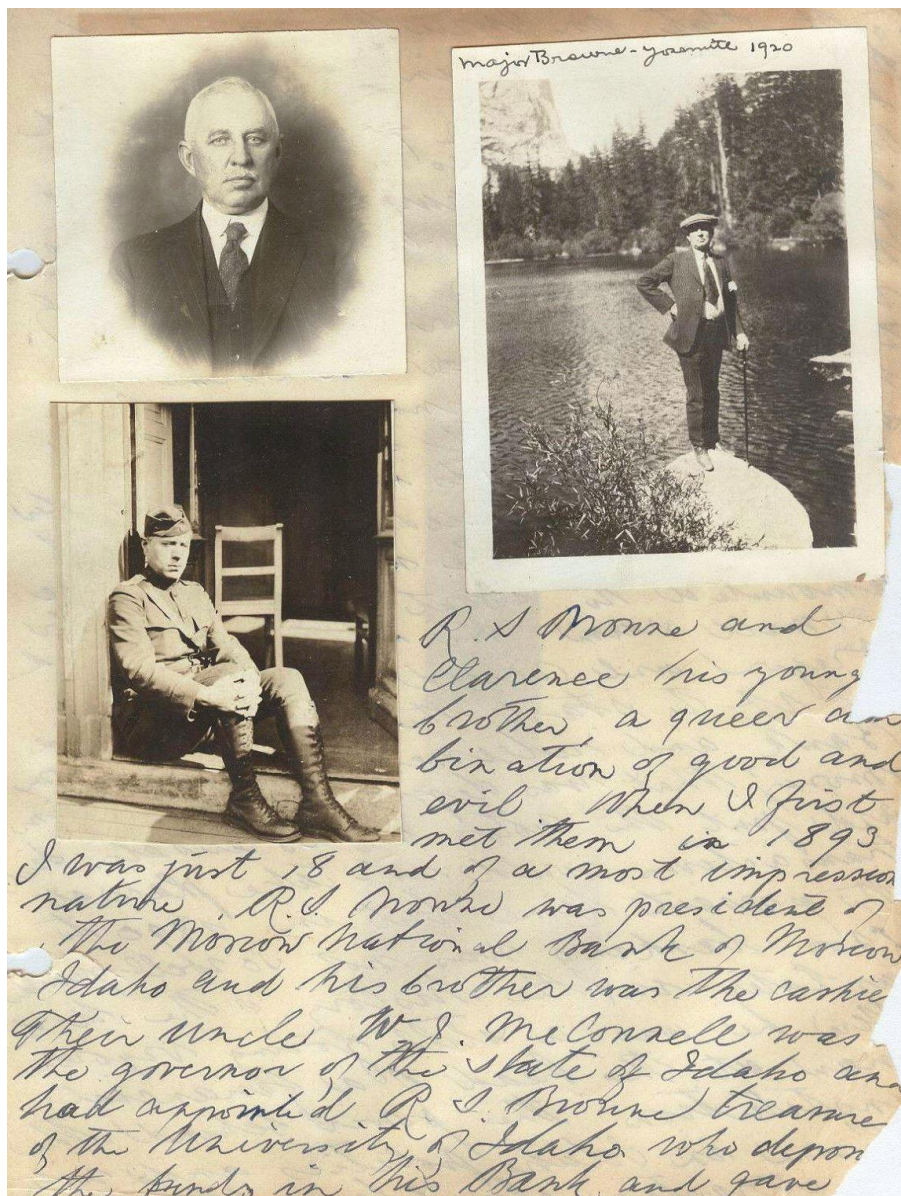 Major Browne - Yosemite 1920
R. S Browne and
Clarence his young
brother, a queer com
bination of good and
evil When I first
met them in 1893
I was just 18 and of a most impression
nature. R.S. Browne was president of
the Moscow National Bank of Moscow
Idaho and his brother was the cashie
Their uncle W.J. McConnell was
the governor of the State of Idaho and
had appointed R. S. Browne treasure
of the University of Idaho who depos
the funds in his Bank and gave